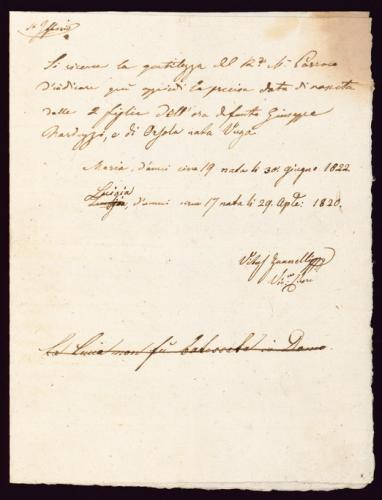 Si ricerca la gentilezza del R.do Sr. Parroco
d'indicare quì appiedi la precisa data di nascita
delle 2 figlie dell'ora defunto Giuseppe
Narduzzo, e di Orsola nata Vuga
Maria, d'anni circa 19 nata li 30. giugno 1822.
Lucia
d'anni circa 17 nata li 29. Aple. 1820.
La Lucia non fu in Duomo